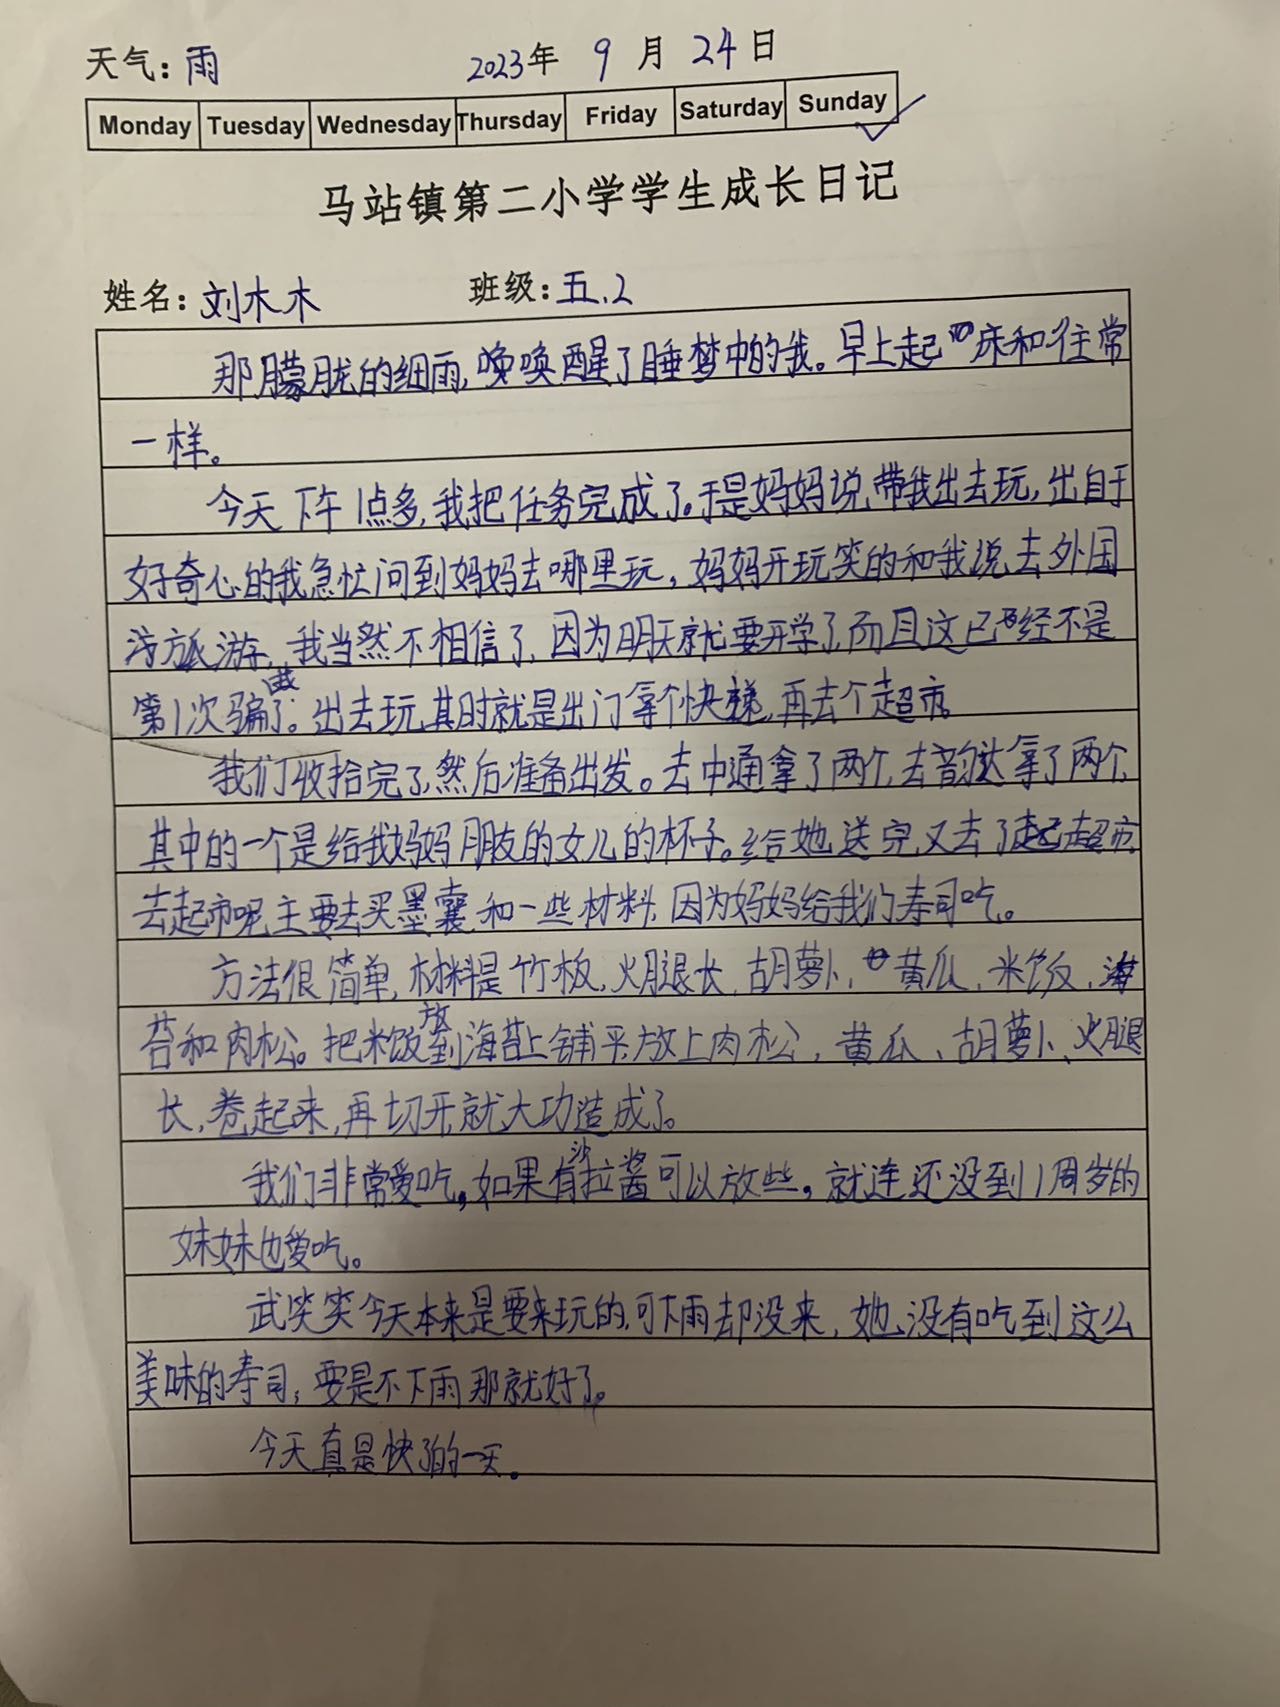 天气：雨 2023年 9 月 24 日
Monday Tuesday Wednesday Thursday Friday Saturday Sunday
马站镇第二小学学生成长日记
姓名：刘木木 班级：五.2
那朦胧的细雨，唤醒了睡梦中的我。早上起床和往常
一样。
今天下午1点多，我把任务完成了。于是妈妈说，带我出去玩，出自于
好奇心的我急忙问到妈妈去哪里玩，妈妈开玩笑的和我说去外国
旅游，我当然不相信了，因为明天就要开学了，而且这已经不是
第1次骗我了。出去玩，其时就是出门拿个快递，再去个超市。
我们收拾完了，然后准备出发。去中通拿了两个，去韵达拿了两个，
其中的一个是给我妈妈朋友的女儿的杯子。给她送完又去了超市，
去超市呢主要去买墨囊和一些材料，因为妈妈给我们寿司吃。
方法很简单，材料是竹板，火腿长，胡萝卜，黄瓜，米饭，海
苔和肉松。把米饭放到海苔上铺平放上肉松，黄瓜、胡萝卜、火腿
长，卷起来，再切开就大功造成了。
我们非常爱吃，如果有沙拉酱可以放些，就连还没到1周岁的
妹妹也爱吃。
武笑笑今天本来是要来玩的，可下雨却没来，她没有吃到这么
美味的寿司，要是不下雨那就好了。
今天真是快了的一天。